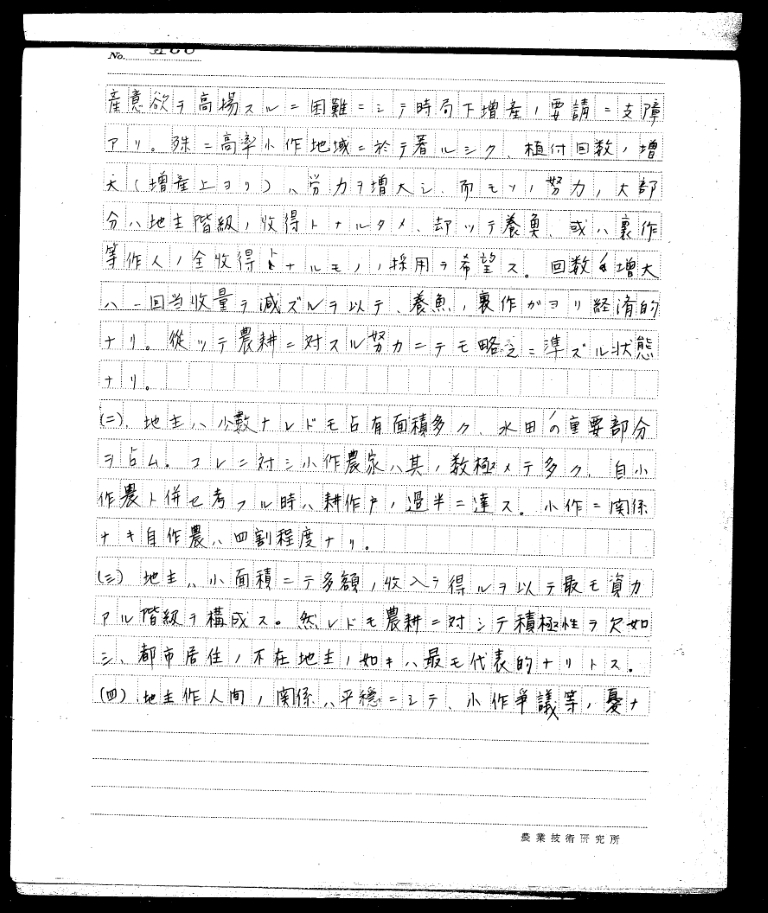 No.
産意欲ヲ高揚スルニ困難ニシテ時局下増産ノ要請ニ支障
アリ。殊ニ高率小作地域ニ於テ著ルシク、植付回数ノ増
大(増産上ヨリ)ハ労力ヲ増大シ、而モソノ努力ノ大部
分ハ地主階級ノ收得トナルタメ、却ツテ養魚、或ハ裏作
等作人ノ全收得トナルモノノ採用ヲ希望ス。回数ノ増大
ハ一回当收量ヲ減ズルヲ以テ、養魚、裏作がヨリ経済的
ナリ。従ツテ農耕ニ対スル努力ニテモ略之ニ準ズル状態
ナリ。
(二)、地主ハ小数ナレドモ占有面積多ク、水田の重要部分
ヲ占ム。コレニ対シ小作農家ハ其ノ数極メテ多ク、自小
作農ト併セ考フル時ハ耕作戸ノ過半ニ達ス。小作ニ関係
ナキ自作農ハ四割程度ナリ。
(三) 地主ハ小面積ニテ多額ノ收入ヲ得ルヲ以テ最モ資力
アル階級ヲ構成ス。然レドモ農耕ニ対シテ積極性ヲ欠如
シ、都市居住ノ不在地主ノ如キハ最モ代表的ナリトス。
(四)、地主作人間ノ関係ハ平穏ニシテ、小作争議等ノ憂ナ
農業技術研究所